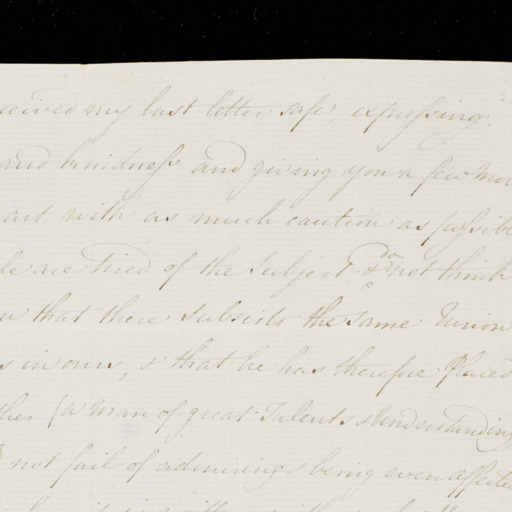 ceived my last letter safe, expressing
and kindness and giving you a few mor
act with as much caution as possibl
le are tired of the Subject & do not think
u that there Subsists the same Union
s in ours, & that he has therefore Placed
ther (a Man of great Talents & Understanding
not fail of admiring & being even affected